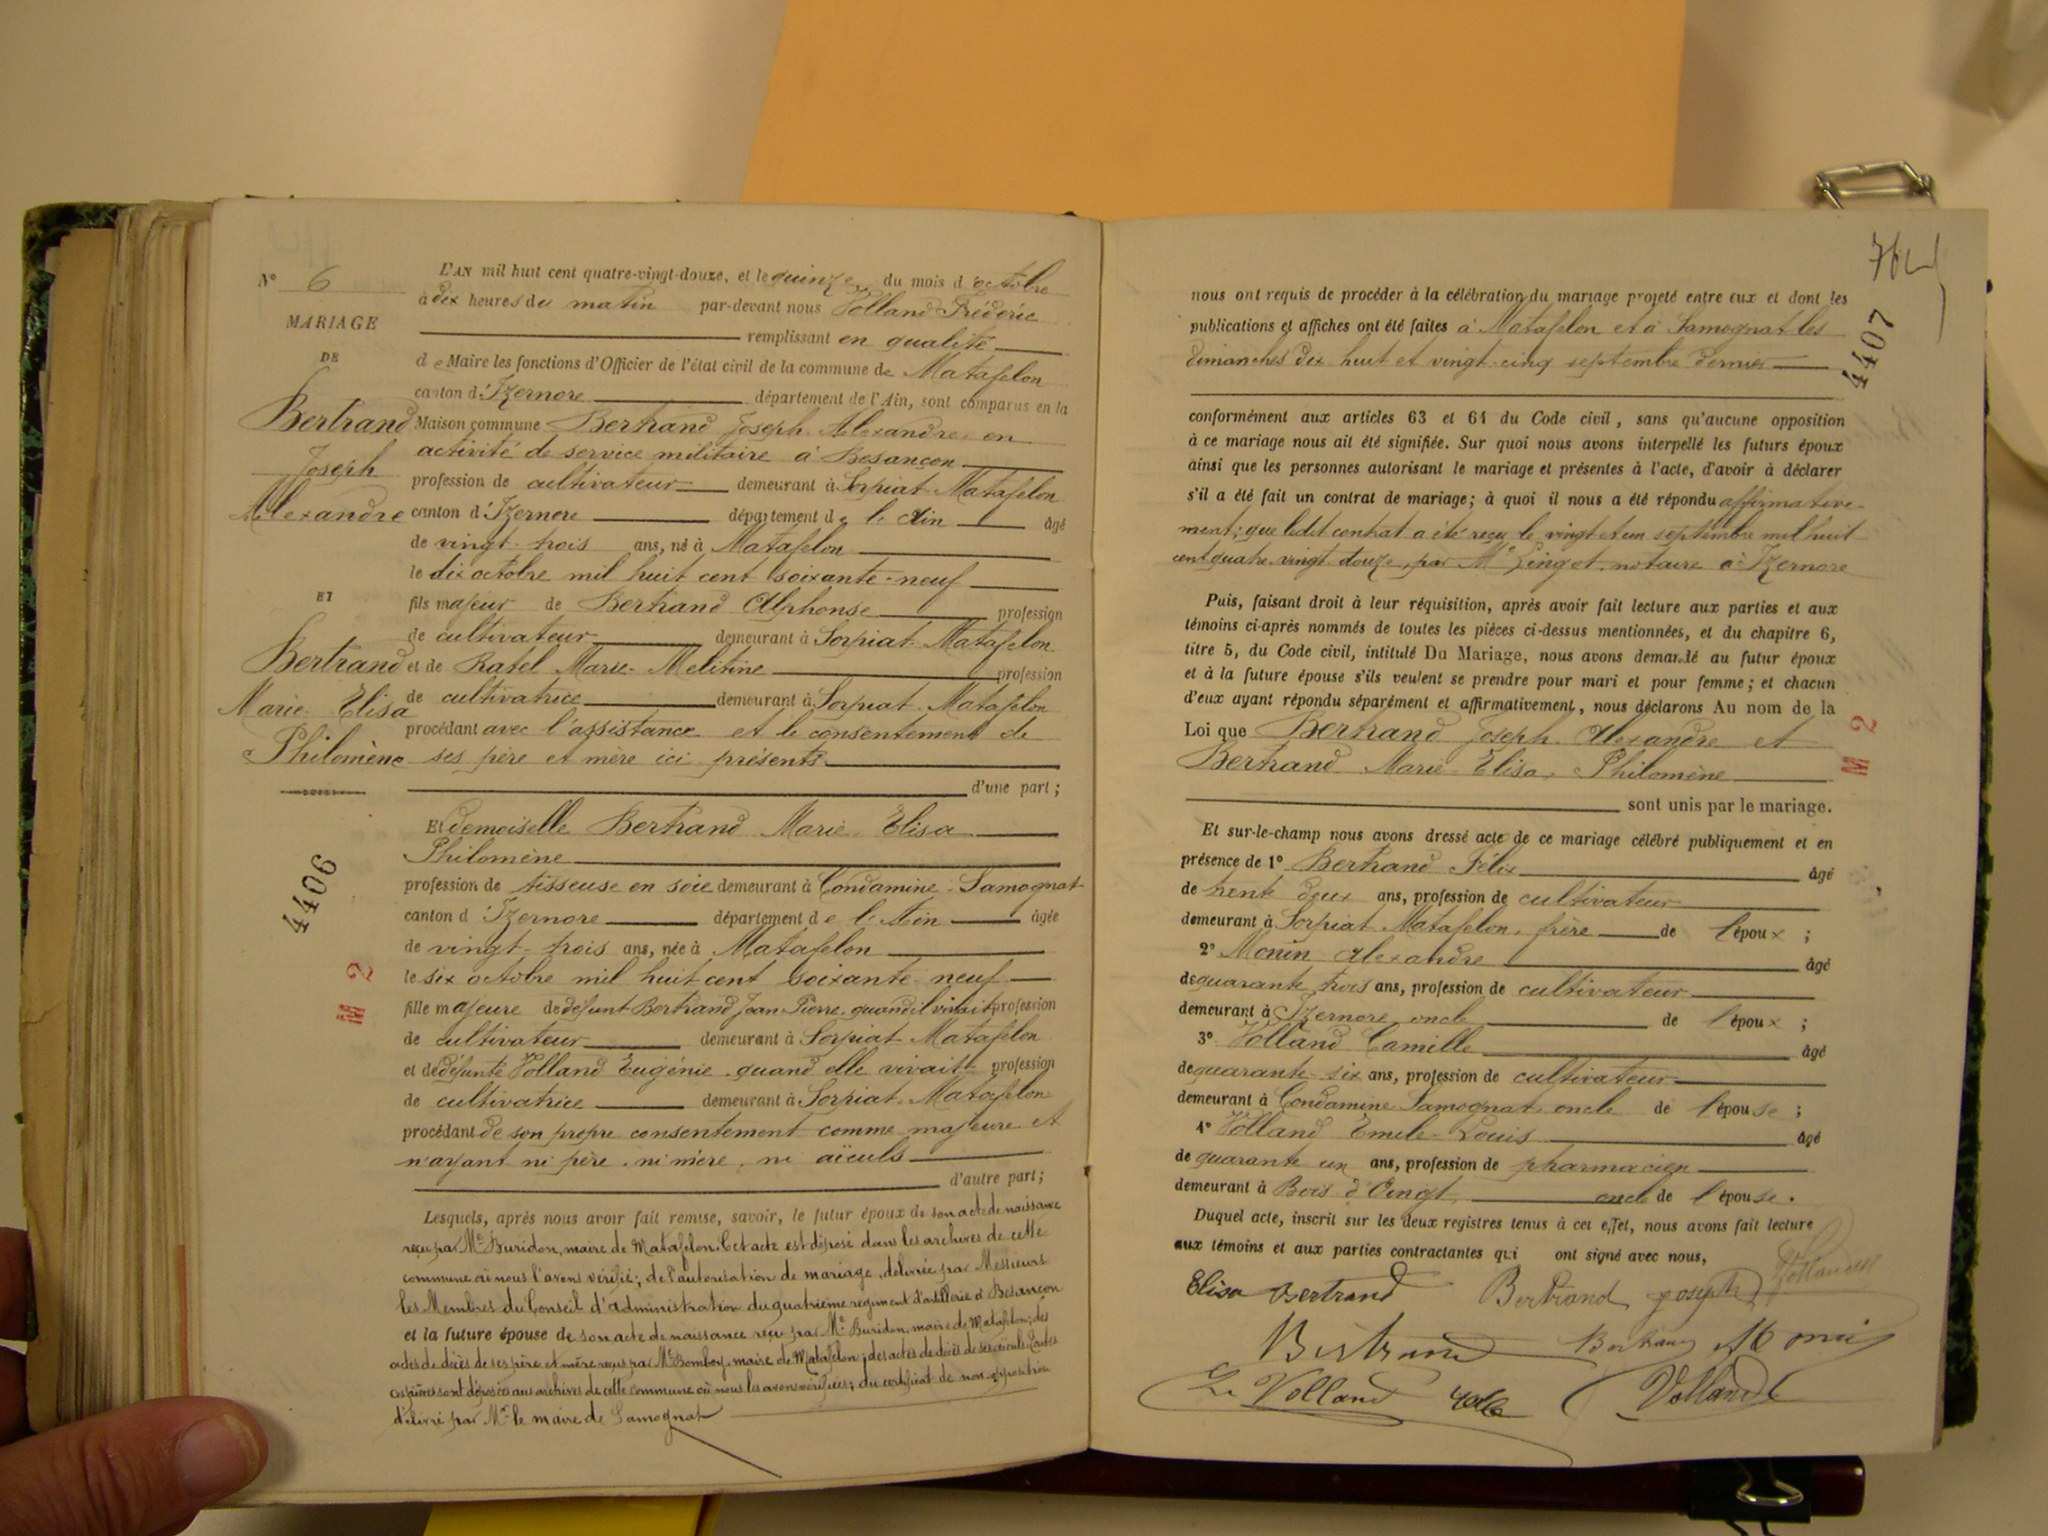 N° 6
MARIAGE
DE
Bertrand
Joseph
Alexandre
ET
Bertrand
Marie Elisa
Philomène
4406
M 2
L'AN mil huit cent quatre-vingt-douze, et le quinze du mois d'octobre
à dix heures du matin par-devant nous Volland Frédéric
remplissant en qualité
de Maire les fonctions d'Officier de l'état civil de la commune de Matafelon
canton d'Izernore département de l'Ain, sont comparus en la
Maison commune Bertrand Joseph Alexandre en
activité de service militaire à Besançon
profession de cultivateur demeurant à Sorpiat-Matafelon
canton d'Izernore département de l'Ain âgé
de vingt-trois ans, né à Matafelon
le dix octobre mil huit cent soixante-neuf
fils majeur de Bertrand Alphonse profession
de cultivateur demeurant à Sorpiat-Matafelon
et de Ratel Marie-Melitine profession
de cultivatrice demeurant à Sorpiat-Matafelon
procédant avec l'assistance et le consentement de
ses père et mère ici présents
d'une part;
Et demoiselle Bertrand Marie Elisa
Philomène
profession de tisseuse en soie demeurant à Condamine-Samognat
canton d'Izernore département de l'Ain âgée
de vingt-trois ans, née à Matafelon
le six octobre mil huit cent soixante-neuf
fille majeure de défunt Bertrand Jean-Pierre, quand il vivait profession
de cultivateur demeurant à Sorpiat-Matafelon
et de défunte Volland Eugénie quand elle vivait profession
de cultivatrice demeurant à Sorpiat-Matafelon
procédant de son propre consentement comme majeure et
n'ayant ni père, ni mère, ni aïeuls
d'autre part;
Lesquels, après nous avoir fait remise, savoir, le futur époux de son acte de naissance
reçu par Mr Buridon, maire de Matafelon. Cet acte est déposé dans les archives de cette
commune où nous l'avons vérifié; de l'autorisation de mariage, délivrée par Messieurs
les Membres du Conseil d'administration du quatrième régiment d'artillerie à Besançon
et la future épouse de son acte de naissance reçu par Mr Buridon, maire de Matafelon; des
actes de décès de ses père et mère reçus par Mr Bomboy, maire de Matafelon; des actes de décès de ses aïeuls. Toutes
ces pièces sont déposées aux archives de cette commune où nous les avons vérifiées; du certificat de non-opposition
délivré par Mr le maire de Samognat
4407
M 2
nous ont requis de procéder à la célébration du mariage projeté entre eux et dont les
publications et affiches ont été faites à Matafelon et à Samognat les
dimanches dix huit et vingt-cinq septembre dernier
conformément aux articles 63 et 64 du Code civil, sans qu'aucune opposition
à ce mariage nous ait été signifiée. Sur quoi nous avons interpellé les futurs époux
ainsi que les personnes autorisant le mariage et présentes à l'acte, d'avoir à déclarer
s'il a été fait un contrat de mariage; à quoi il nous a été répondu affirmative-
ment; que ledit contrat a été reçu le vingt et un septembre mil huit
cent quatre-vingt douze, par Me Lingot, notaire à Izernore
Puis, faisant droit à leur réquisition, après avoir fait lecture aux parties et aux
témoins ci-après nommés de toutes les pièces ci-dessus mentionnées, et du chapitre 6,
titre 5, du Code civil, intitulé Du Mariage, nous avons demandé au futur époux
et à la future épouse s'ils veulent se prendre pour mari et pour femme; et chacun
d'eux ayant répondu séparément et affirmativement, nous déclarons Au nom de la
Loi que Bertrand Joseph Alexandre et
Bertrand Marie-Elisa, Philomène
sont unis par le mariage.
Et sur-le-champ nous avons dressé acte de ce mariage célébré publiquement et en
présence de 1° Bertrand Félix âgé
de trente deux ans, profession de cultivateur
demeurant à Sorpiat Matafelon, frère de l'époux;
2° Monin Alexandre âgé
de quarante trois ans, profession de cultivateur
demeurant à Izernore, oncle de l'époux;
3° Volland Camille âgé
de quarante-six ans, profession de cultivateur
demeurant à Condamine-Samognat oncle de l'épouse;
4° Volland Emile-Louis âgé
de quarante un ans, profession de pharmacien
demeurant à Bois d'Oingt, oncle de l'épouse.
Duquel acte, inscrit sur les deux registres tenus à cet effet, nous avons fait lecture
aux témoins et aux parties contractantes qui ont signé avec nous,
Elisa Bertrand Bertrand joseph
Bertrand Bertrand Monin
Volland Volland